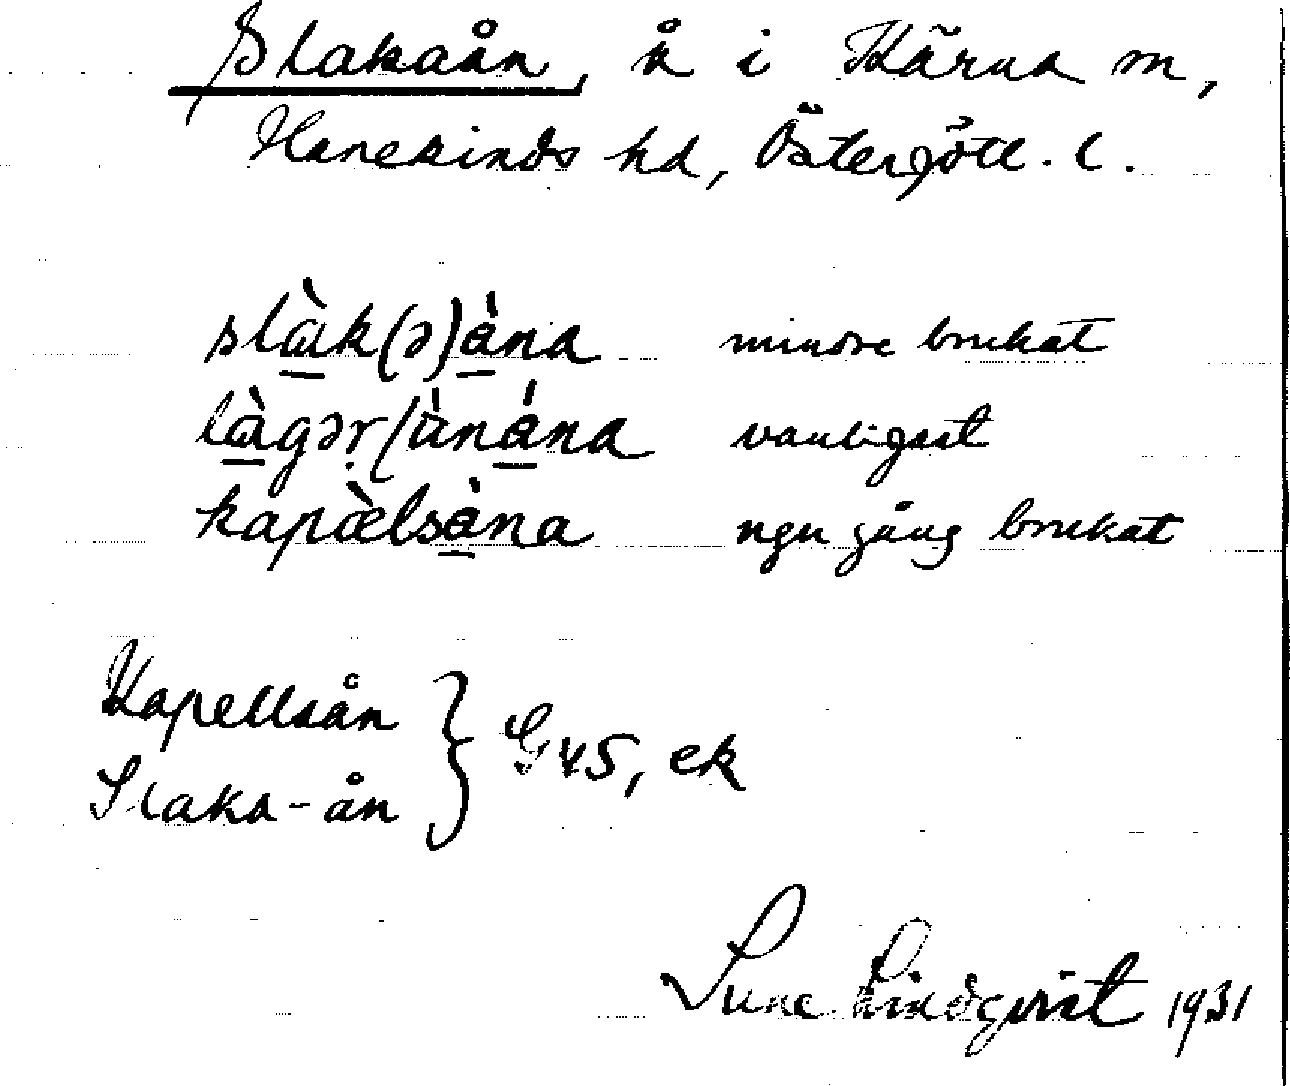 Slakaån, å i Kärna sn,
Hanekinds hd, Östergötl. l.
slɑ̀k(ə)ána mindre brukat
lɑ̀gər/ùnána vanligast
kapæ̀lsàna ngn gång brukat
Kapellsån
Slaka-ån } G45, ek
Sune Lindqvist 1931